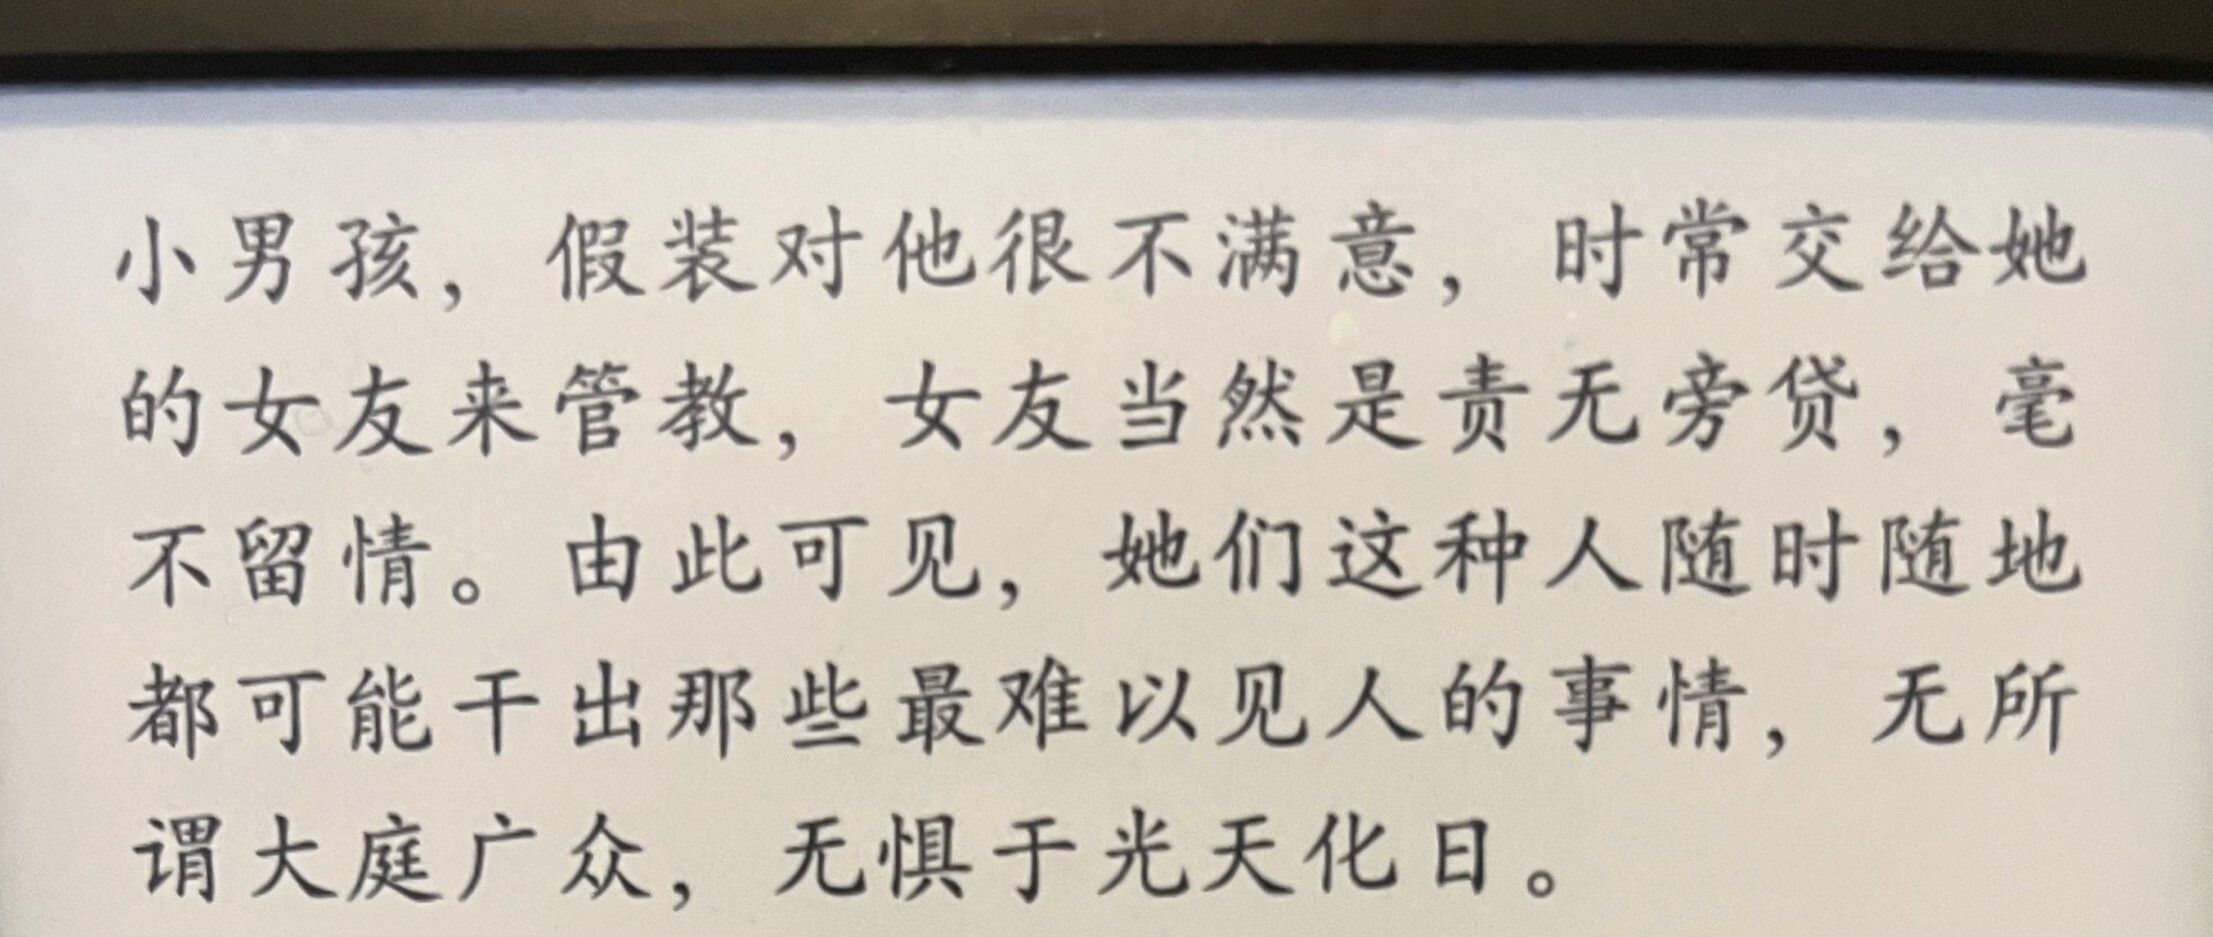 小男孩，假装对他很不满意，时常交给她
的女友来管教，女友当然是责无旁贷，毫
不留情。由此可见，她们这种人随时随地
都可能干出那些最难以见人的事情，无所
谓大庭广众，无惧于光天化日。